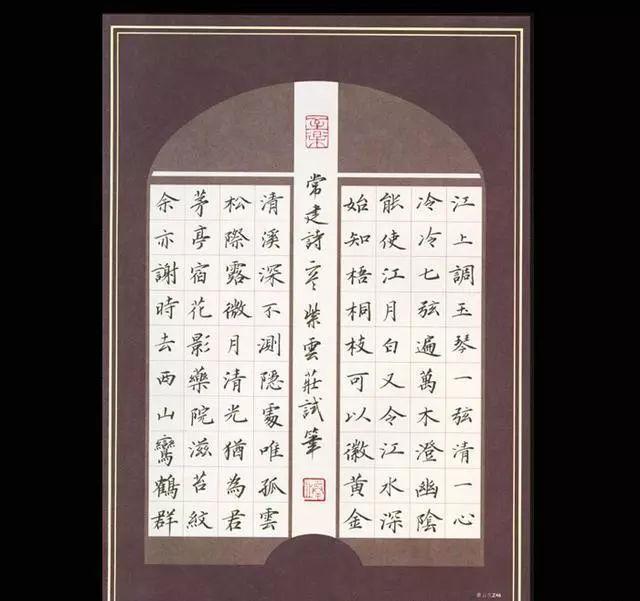 江上調玉琴一弦清一心
冷冷七弦遍萬木澄幽陰
能使江月白又令江水深
始知梧桐枝可以徽黃金
常建詩紫雲莊試筆
清溪深不測隱處唯孤雲
松際露微月清光猶為君
茅亭宿花影藥院滋苔紋
余亦謝時去西山鸞鶴群